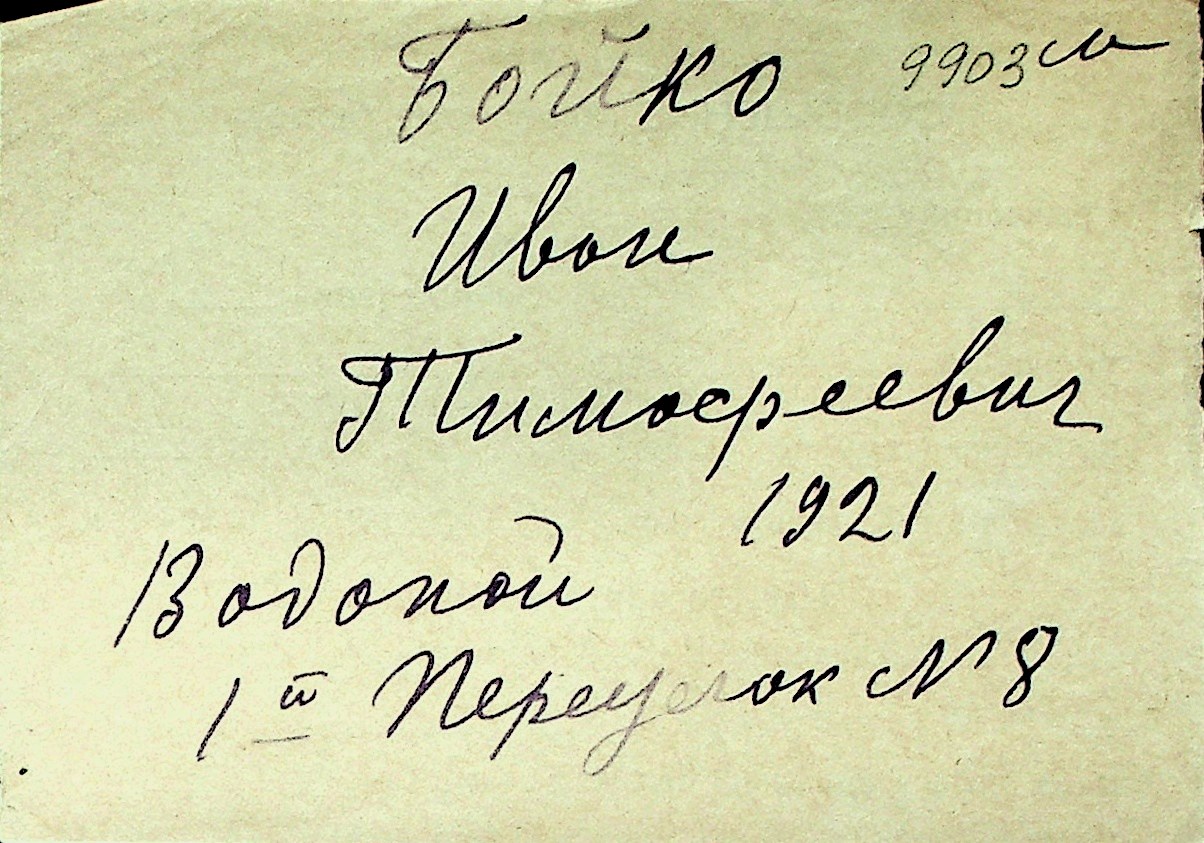 Бойко 9903 м
Иван
Тимофеевич
1921
Водопой
1й Переулок N 8